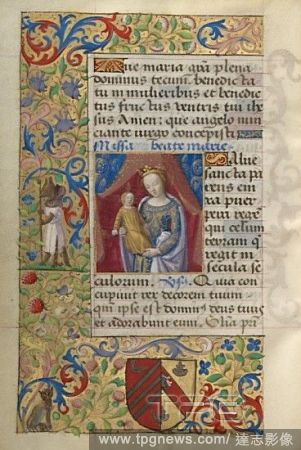 Aue maria gra plena
dominus tecum. benedicta
tu in mulieribus et benedic
tus fructus ventris tui ihe
sus Amen: que angelo nun
ciante virgo concepisti
Missa beate marie.
Salue
sancta pa
rens eni
xa puer
pera rege
qui celum
terram q
regit in
secula se
culorum. Vs. Quia con
cupiuit rex decorem tuum
qui ipse est dominus deus tuus
et adorabunt eum. Glia pri
TPG
www.tpgnews.com/ 達志影像